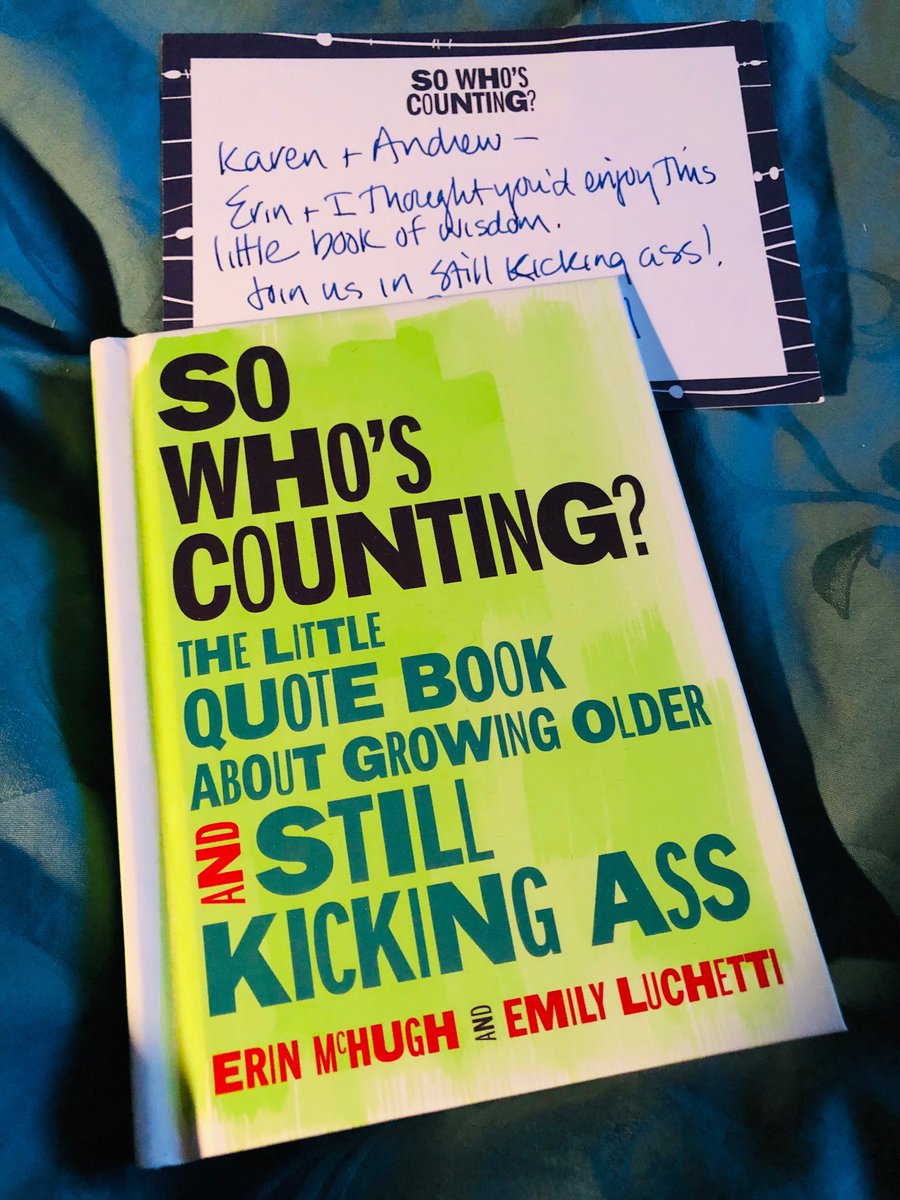 SO WHO'S
COUNTING?
Karen + Andrew —
Erin + I Thought you'd enjoy This
little book of wisdom.
Join us in still kicking ass!
SO
WHO'S
COUNTING?
THE LITTLE
QUOTE BOOK
ABOUT GROWING OLDER
AND STILL
KICKING ASS
ERIN McHUGH AND EMILY LUCHETTI